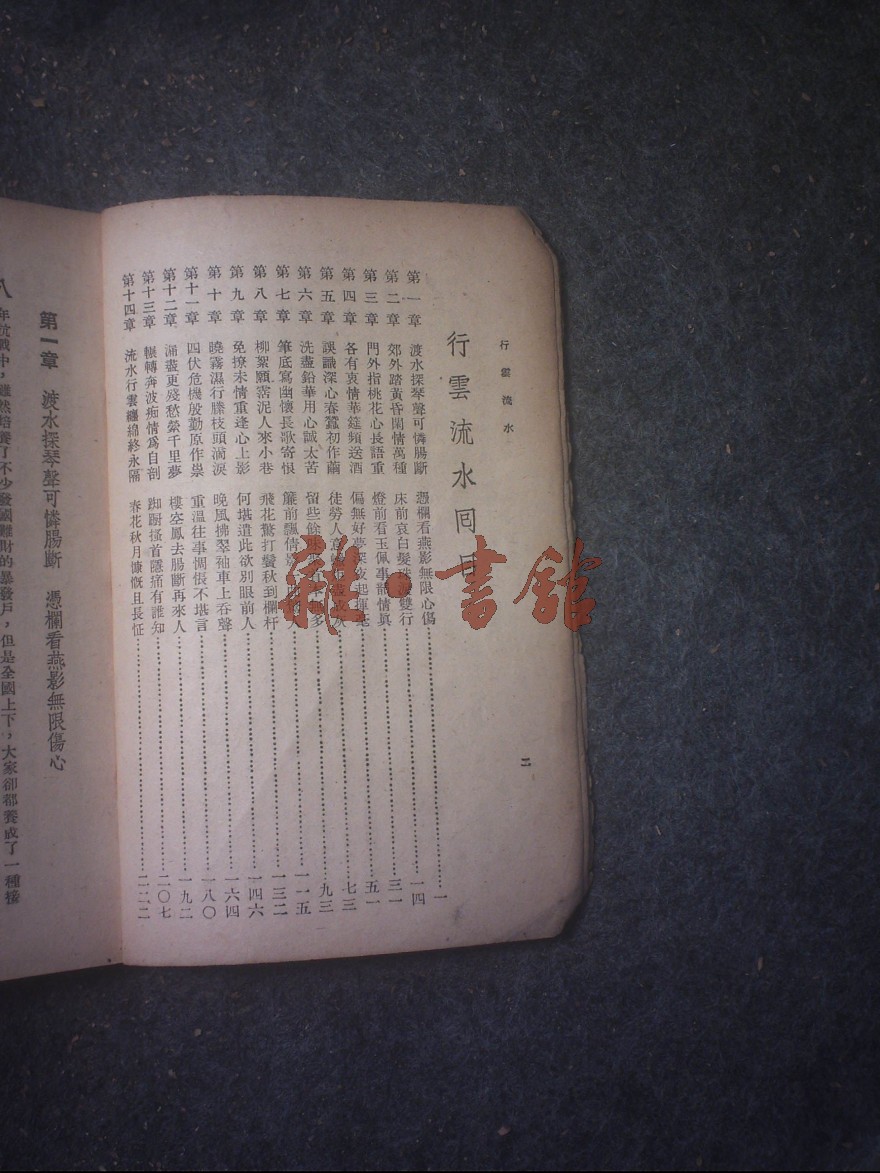 行雲流水
二
行雲流水囘目
第一章 渡水探琴聲可憐腸斷 憑欄看燕影無限心傷 一
第二章 郊外踏黃昏閑情萬種 床前哀白髮珠淚雙行 一四
第三章 門外指桃花心長語重 燈前看玉佩事韻情眞 三一
第四章 各有哀情華筵頻送酒 偏無好夢深夜起揮毫 五一
第五章 誤識深心春蠶初作繭 徒勞人意 成灰 七三
第六章 洗盡鉛華用心誠太苦 留些餘味 多 九三
第七章 筆底寫幽懷長歌寄恨 簾前飄倩影 人 一一五
第八章 柳絮願霑泥人來小巷 飛花驚打鬢秋到欄杆 一三二
第九章 免撩未情重逢心上影 何堪遣此欲別眼前人 一四六
第十章 曉霧濕行滕枝頭滴淚 晚風拂翠袖車上吞聲 一六四
第十一章 四伏危機殷勤原作祟 重溫往事惆悵不堪言 一八〇
第十二章 漏盡更殘愁縈千里夢 樓空鳳去腸斷再來人 一九二
第十三章 輾轉奔波痴情爲自剖 踟蹰搔首隱痛有誰知 二〇七
第十四章 流水行雲纏綿終永隔 春花秋月慷慨且長怔 二二二
第一章 渡水探琴聲可憐腸斷 憑欄看燕影無限傷心
八年抗戰中，雖然培養了不少發國難財的暴發戶，但是全國上下，大家卻都養成了一種接
雜·書館